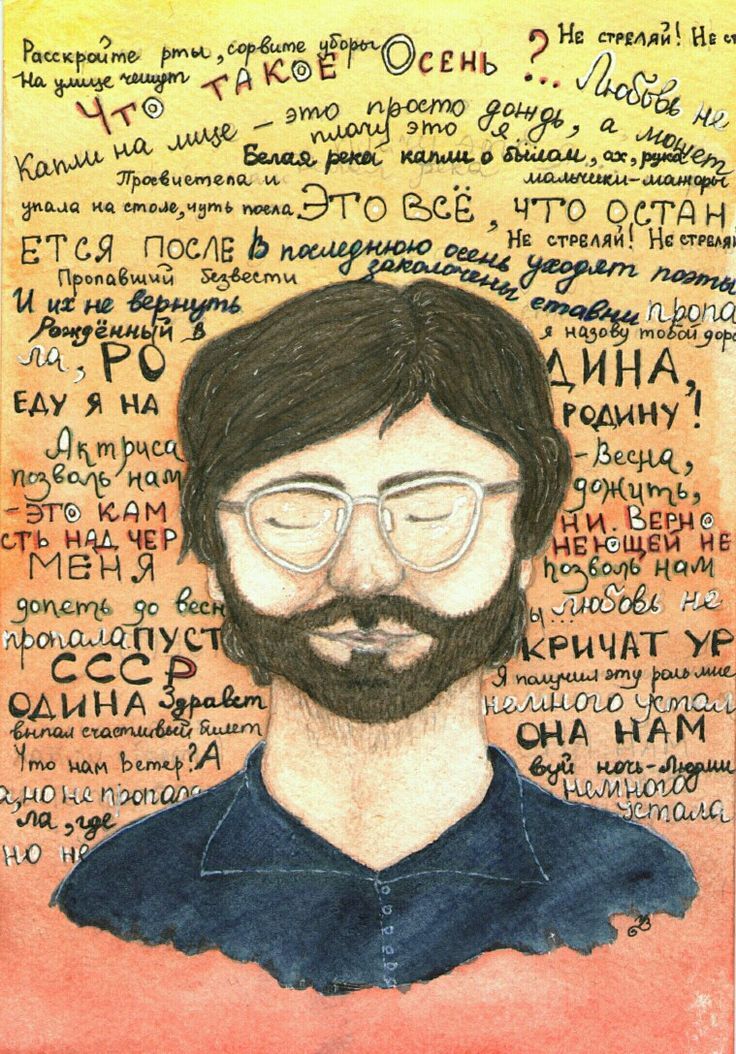 Расскройте рты, сорвите уборы
Не стреляй! Не ст
На улице чешут
Что такое Осень ?...
Любовь не
Капли на лице – это просто дождь, а может
плачу это я...
Белая река капли о былом, ах, река
Просвистела и
мальчики-мажоры
упала на столе, чуть поела.
Это всё, что остан
ется после
Не стреляй! Не стреляй
В последнюю осень уходят поэты
Пропавший безвести
заколочены ставни
И их не вернуть
пропа
Рождённый в
я назову тобой доро
ла, РО ДИНА,
ЕДУ Я НА РОДИНУ!
Актриса - Весна,
позволь нам дожить,
- ЭТО КАМ НИ. ВЕРНО
СТЬ НАД ЧЕР НЕЮЩЕЙ НЕ
МЕНЯ позволь нам
допеть до весн ы... любовь не
пропала. ПУСТ КРИЧАТ УР
СССР Я получил эту роль мне
ОДИНА Здравст немного устал
выпал счастливый билет ОНА НАМ
Что нам ветер? А вуй ночь-Людми
а, но не пропала немного
ла, где устала
но не